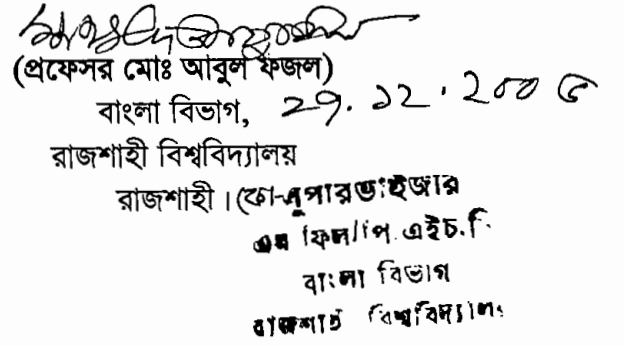 (প্রফেসর মোঃ আবুল ফজল)
বাংলা বিভাগ, ২৭.১২.২০০৫
রাজশাহী বিশ্ববিদ্যালয়
রাজশাহী। কো-সুপারভাইজার
এম ফিল/পি.এইচ.ডি
বাংলা বিভাগ
রাজশাহী বিশ্ববিদ্যালয়